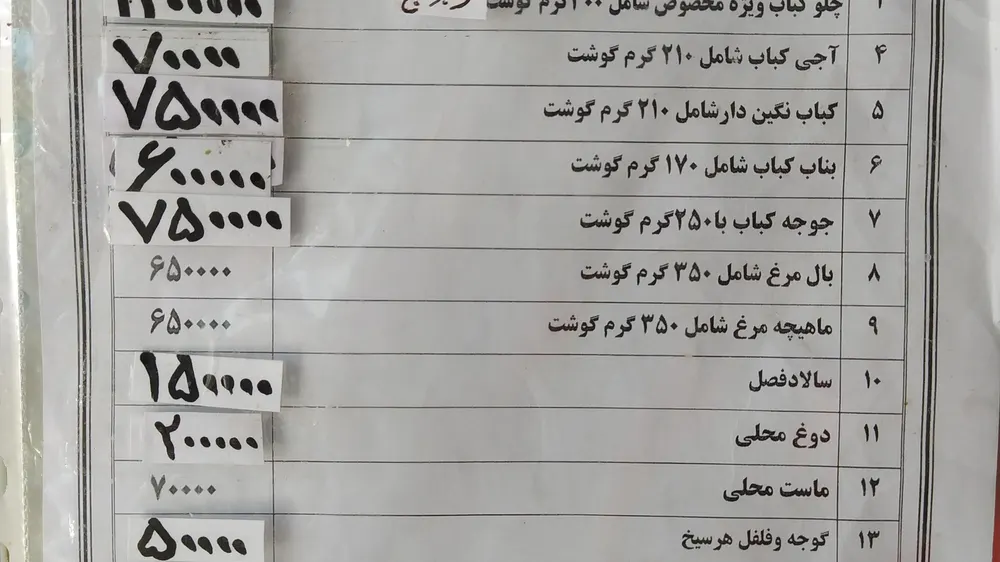 چلو کباب ویژه مخصوص شامل گرم گوشت
۴ آجی کباب شامل ۲۱۰ گرم گوشت ۷۰۰۰۰
۵ کباب نگین دارشامل ۲۱۰ گرم گوشت ۷۵۰۰۰۰۰
۶ بناب کباب شامل ۱۷۰ گرم گوشت ۶۰۰۰۰۰
۷ جوجه کباب با۲۵۰گرم گوشت ۷۵۰۰۰۰
۸ بال مرغ شامل ۳۵۰ گرم گوشت ۶۵۰۰۰۰
۹ ماهیچه مرغ شامل ۳۵۰ گرم گوشت ۶۵۰۰۰۰
۱۰ سالادفصل ۱۵۰۰۰۰۰
۱۱ دوغ محلی ۲۰۰۰۰۰
۱۲ ماست محلی ۷۰۰۰۰
۱۳ گوجه وفلفل هرسیخ ۵۰۰۰۰